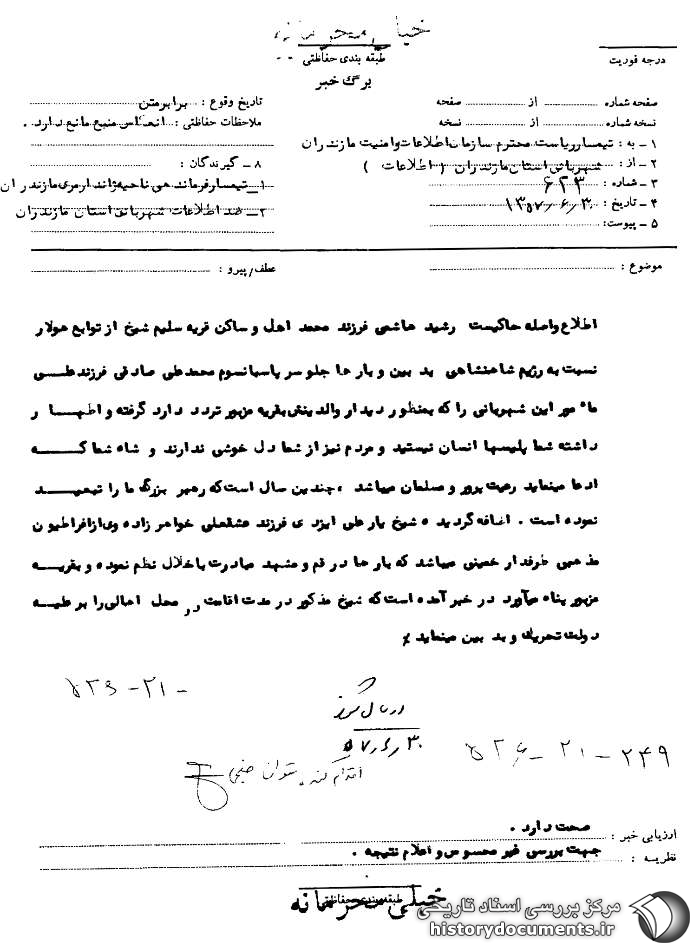 خیلی محرمانه
طبقه بندی حفاظتی
برگ خبر
درجه فوریت
صفحه شماره از صفحه
نسخه شماره از نسخه
۱ - به : تیمسار ریاست محترم سازمان اطلاعات و امنیت مازندران
۲ - از : شهربانی استان مازندران ( اطلاعات )
۳ - شماره : ۶۲۳
۴ - تاریخ : ۱۳۵۷/۶/۳۰
۵ - پیوست:
تاریخ وقوع : برابر متن
ملاحظات حفاظتی : انعکاس منبع مانع دارد .
۸ - گیرندگان :
۱ـ تیمسار فرماندهی ناحیه ژاندارمری مازندران
۲ـ ضد اطلاعات شهربانی استان مازندران
موضوع :
عطف/پیرو :
اطلاع واصله حاکیست رشید هاشمی فرزند محمد اهل و ساکن قریه سلیم شیخ از توابع هولار
نسبت به رژیم شاهنشاهی بد بین و بار ها جلو سر پاسبانسوم محمدعلی صادقی فرزند علی
مامور این شهربانی را که بمنظور دیدار والدینش بقریه مزبور تردد دارد گرفته و اظهار
داشته شما پلیسها انسان نیستید و مردم نیز از شما دل خوشی ندارند و شاه شما که
ادعا مینماید رعیت پرور و مسلمان میباشد ، چندین سال است که رهبر بزرگ ما را تبعید
نموده است . اضافه گردیده شیخ یار علی ایزدی فرزند عشقعلی خواهر زاده وی از افراطیون
مذهبی طرفدار خمینی میباشد که بار ها در قم و مشهد مبادرت باخلال نظم نموده و بقریه
مزبور پناه میآورد در خبر آمده است که شیخ مذکور در مدت اقامت در محل اهالی را بر علیه
دولت تحریک و بد بین مینماید ٪
۵۲۶-۲۱-
۵۷/۶/۳۰
۵۲۶-۲۱-۲۴۹
ارزیابی خبر : صحت دارد .
نظریه : جهت بررسی غیر محسوس و اعلام نتیجه .
طبقه بندی حفاظتی
خیلی محرمانه
مرکز بررسی اسناد تاریخی
historydocuments.ir